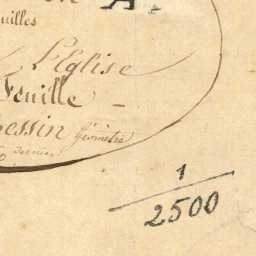 A.
uilles
l'Eglise
Feuille
essin Géomètre
1
2500